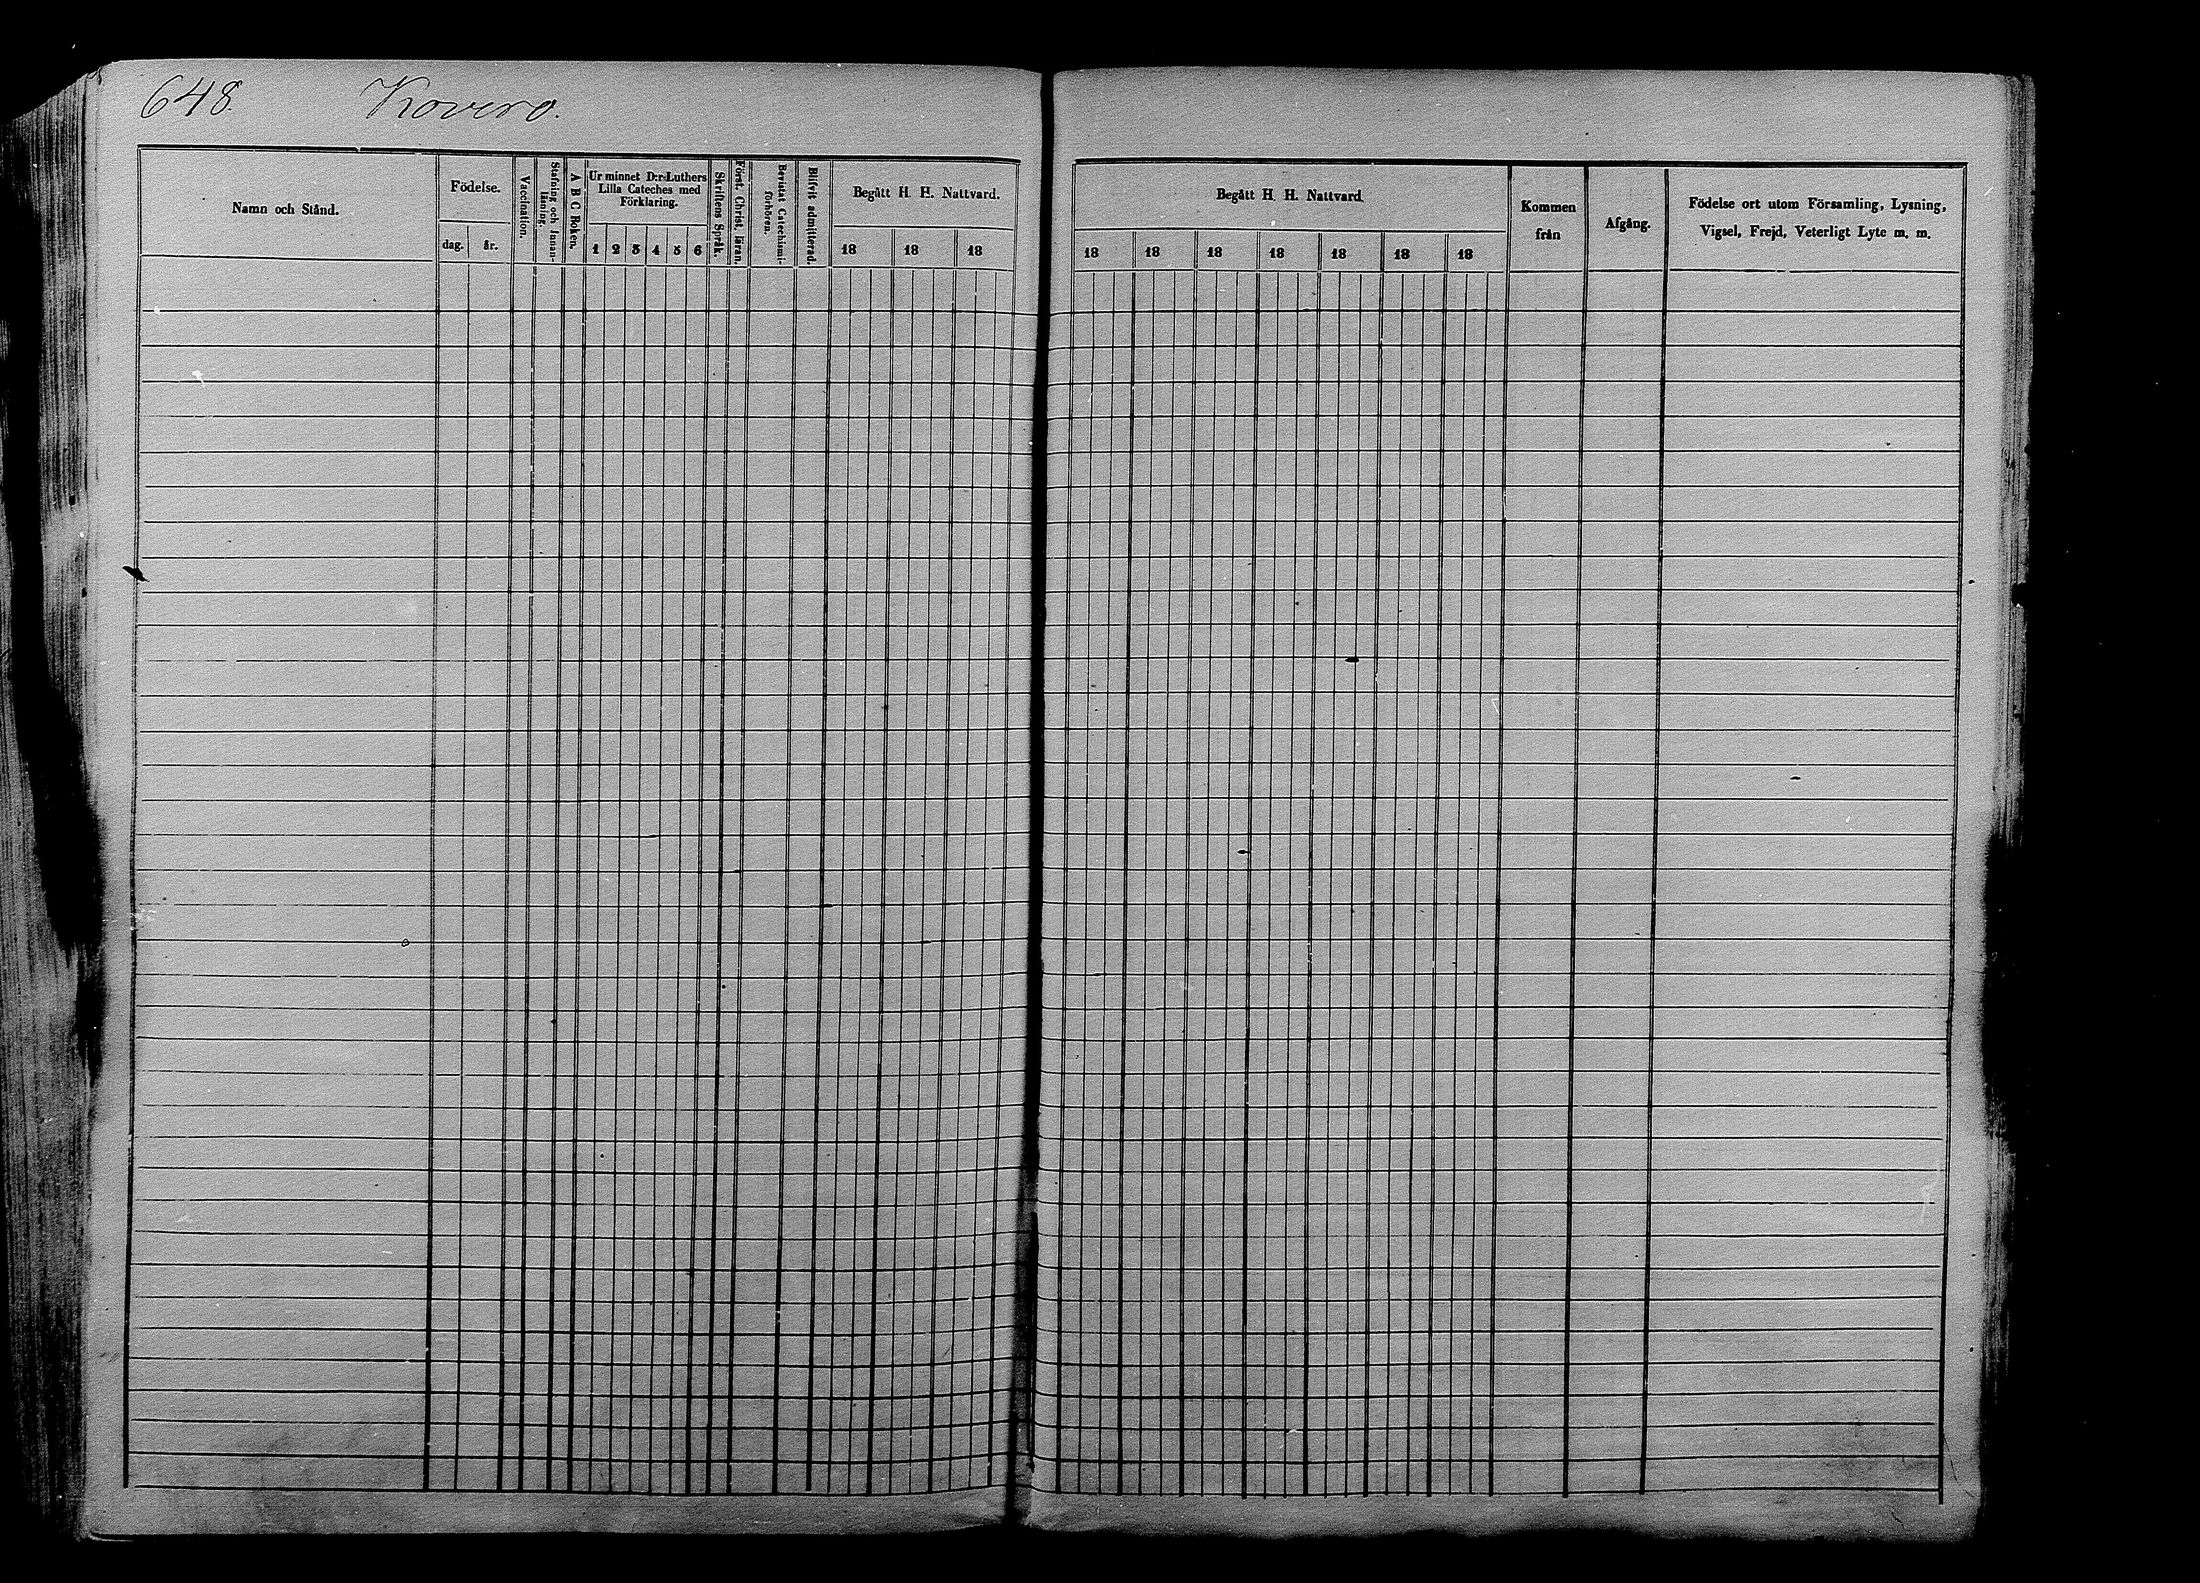 648. Kovero.
Namn och Stånd.
Födelse.
dag. år.
Vaccination.
Stafning och Innan-
läsning.
A B C Boken.
Ur minnet D:r Luthers
Lilla Cateches med
Förklaring.
1 2 3 4 5 6
Skriftens Språk.
Först. Christ. läran.
Bevistat Catechismi-
förhören.
Blifvit admitterad.
Begått H. H. Nattvard.
18 18 18
Begått H. H. Nattvard.
18 18 18 18 18 18 18
Kommen
från
Afgång.
Födelse ort utom Församling, Lysning,
Vigsel, Frejd, Veterligt Lyte m. m.